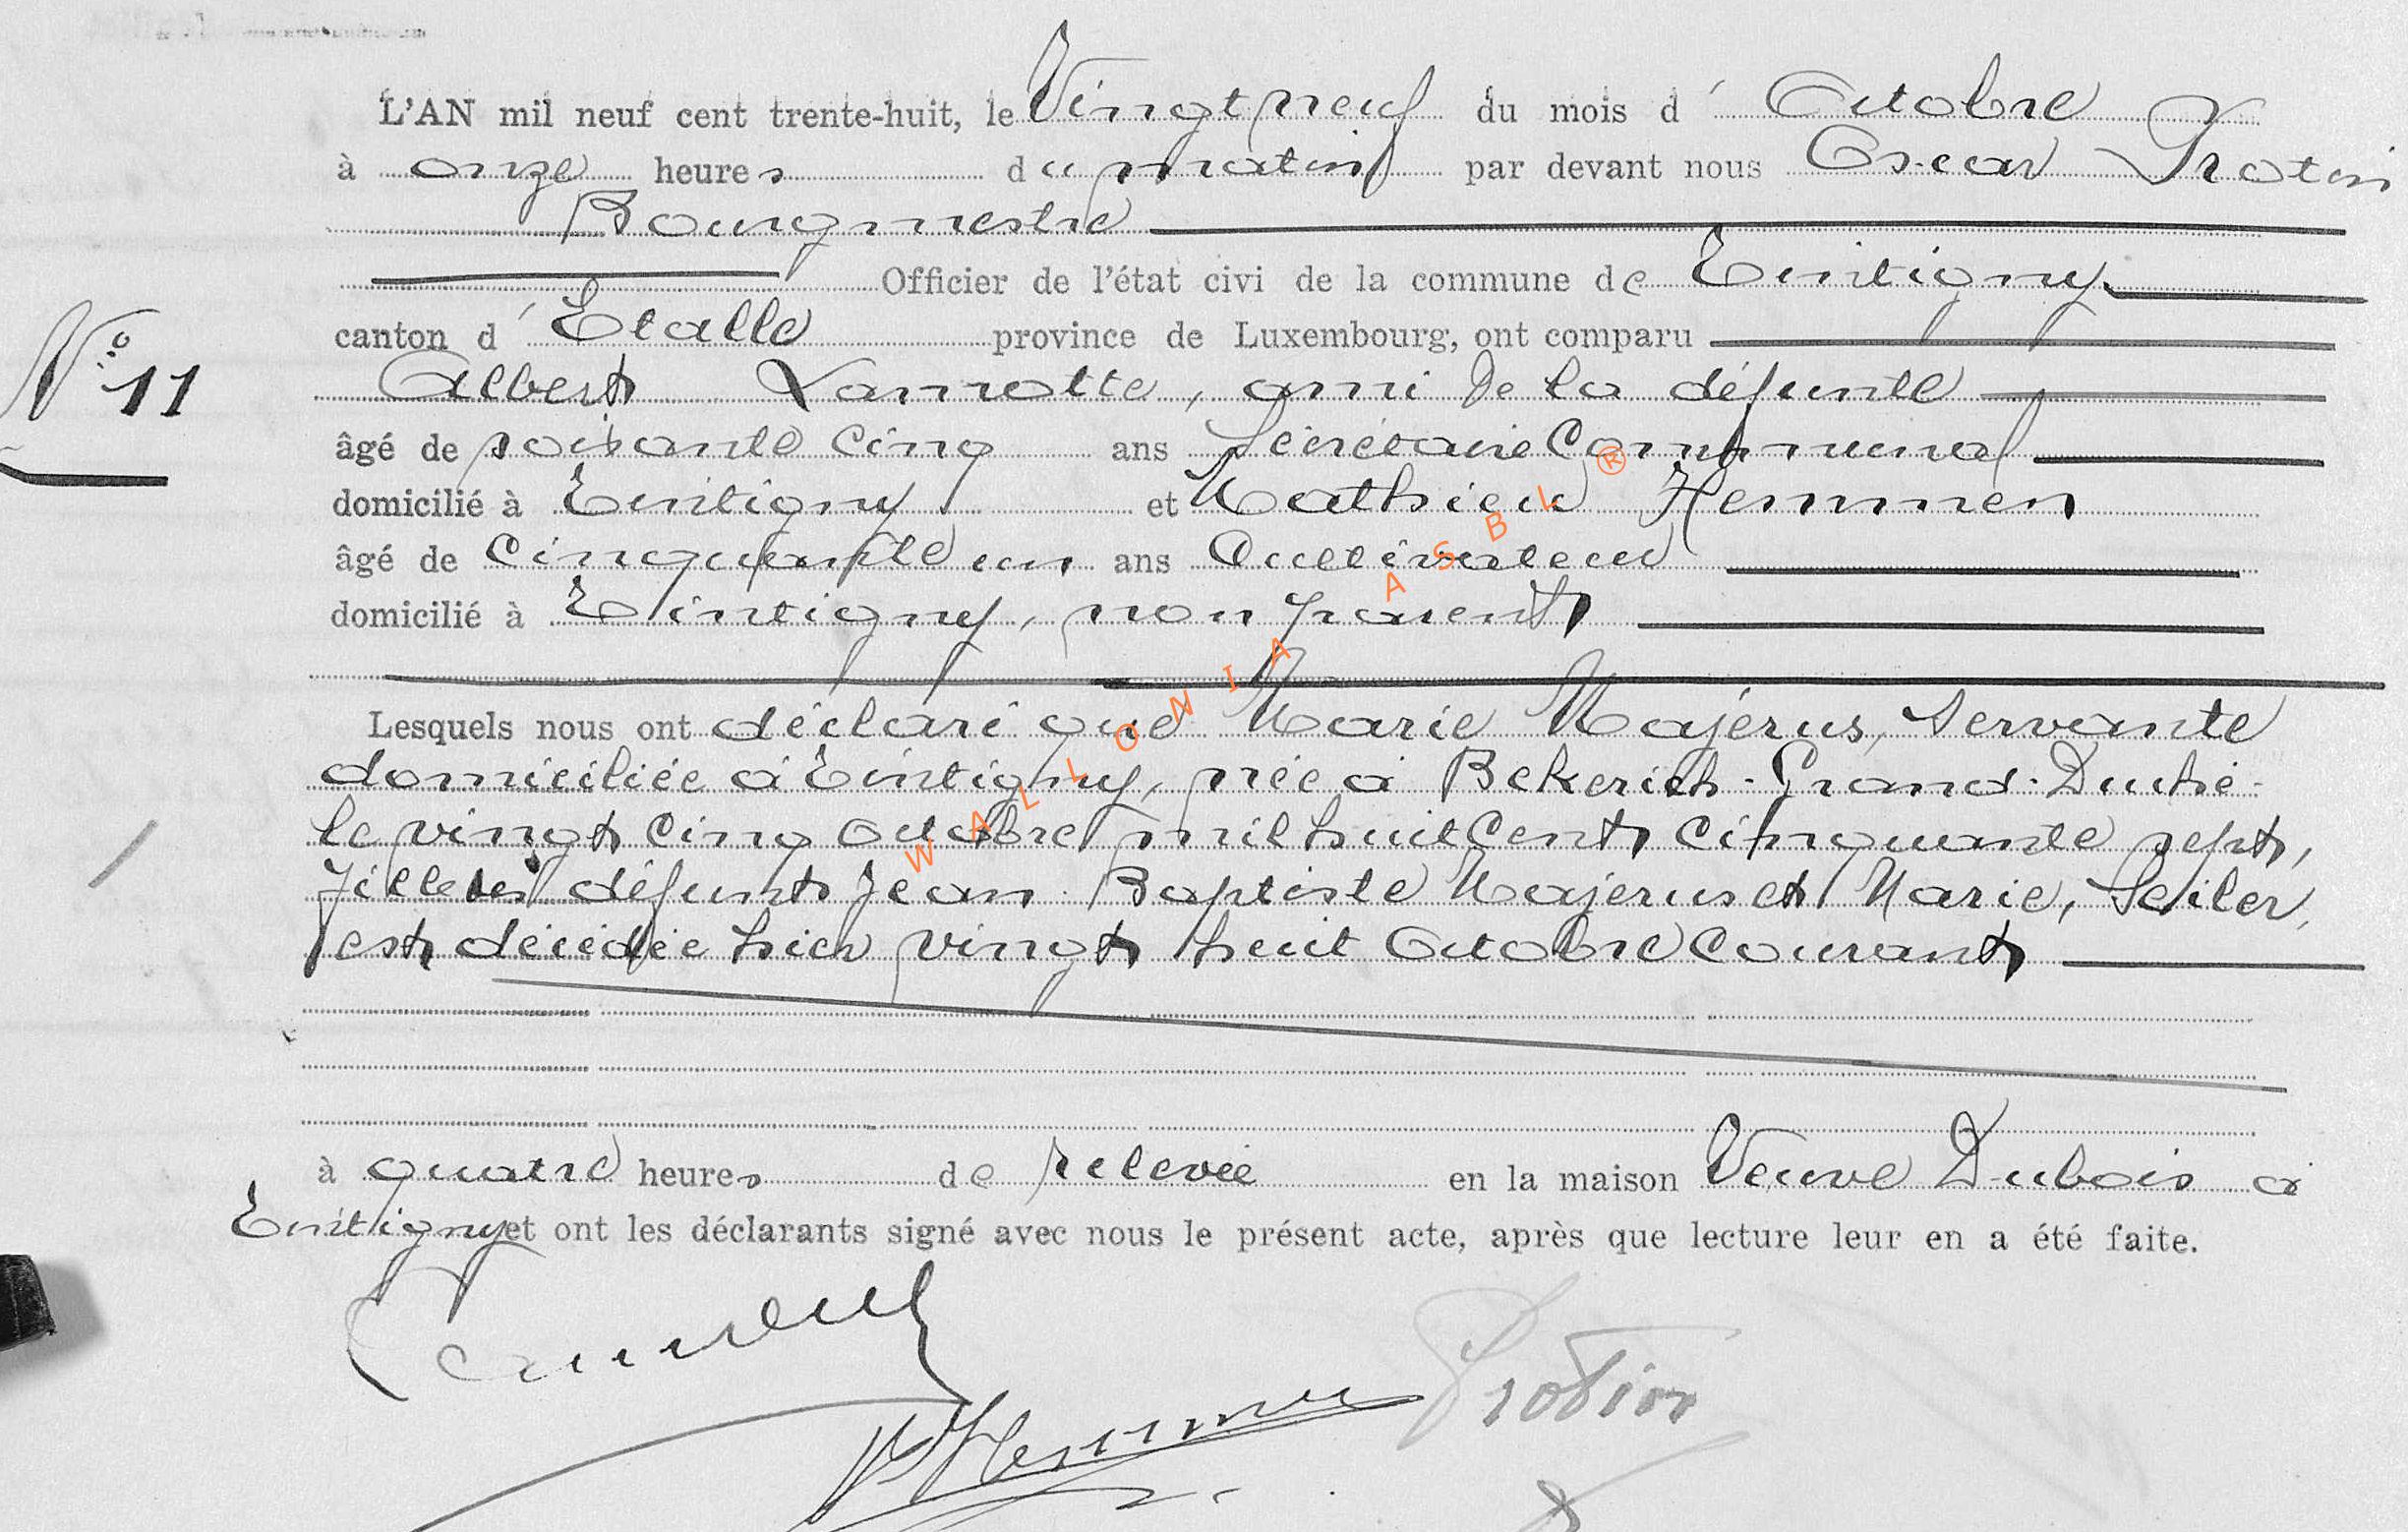 L'AN mil neuf cent trente-huit, le Vingt neuf du mois d' Octobre
à onze heures du matin par devant nous Oscar Protin
Bourgmestre
Officier de l'état civi de la commune de Tintigny
canton d' Etalle province de Luxembourg, ont comparu
N° 11
Albert Lamotte, ami de la défunte
âgé de soixante cinq ans Secrétaire Communal
domicilié à Tintigny et Mathieu Hemmen
âgé de Cinquante un ans Cultivateur
domicilié à Tintigny, non parent
Lesquels nous ont déclaré que Marie Majérus, Servante
domiciliée à Tintigny, née à Bekerich - Grand-Duché -
le vingt cinq Octobre mil huit Cent Cinquante sept,
fille des défunts Jean Baptiste Majerus et Marie, Seiler,
est décédée hier vingt huit Octobre Courant
à quatre heures de relevée en la maison Veuve Dubois à
Tintigny et ont les déclarants signé avec nous le présent acte, après que lecture leur en a été faite.
Hemmen
Protin
WALLONIA ASBL ®